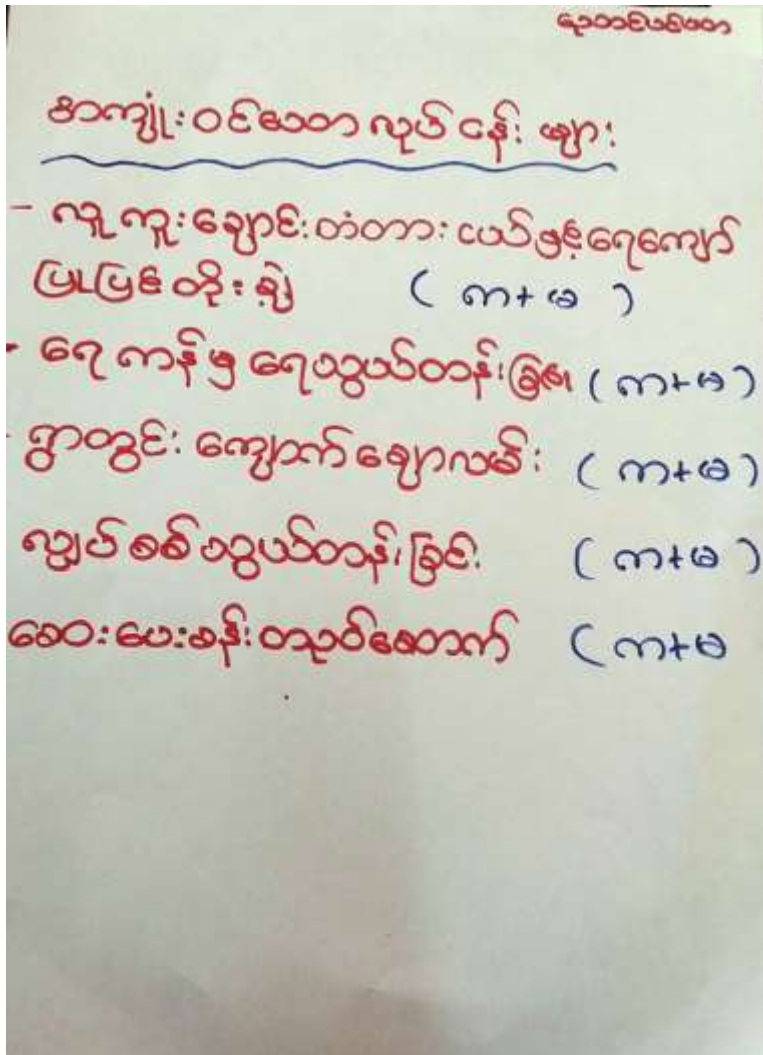 အကျုံးဝင်သော လုပ် ငန်း များ
- လူ ကူး ချောင်း တံတား ငယ်နှင့် ရေကျော်
ပြုပြင် တိုး ချဲ့ ( က + မ )
- ရေ ကန် မှ ရေသွယ်တန်းခြင်း ( က + မ )
- ရွာတွင်း ကျောက် ချောလမ်း ( က + မ )
လျှပ် စစ် သွယ်တန်း ခြင်း ( က + မ )
ဆေးပေးခန်း တည်ဆောက် ( က + မ